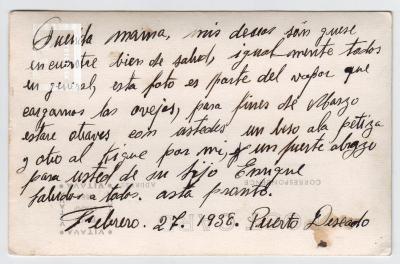 Querida mama, mis deseos són quese
encuentre bien de salud, igual mente todos
en general, esta foto es parte del vapor que
cargamos las ovejas, para fines de Marzo
estare otraves con ustedes un beso ala petiza
y otro al Kique por mi, y un fuerte abrazo
para usted de su hijo Enrique
Saludos a todos. asta pronto.
Febrero. 27. 1938. Puerto Deseado
CORRESPONDENCE
ADDRESS
VITAVA